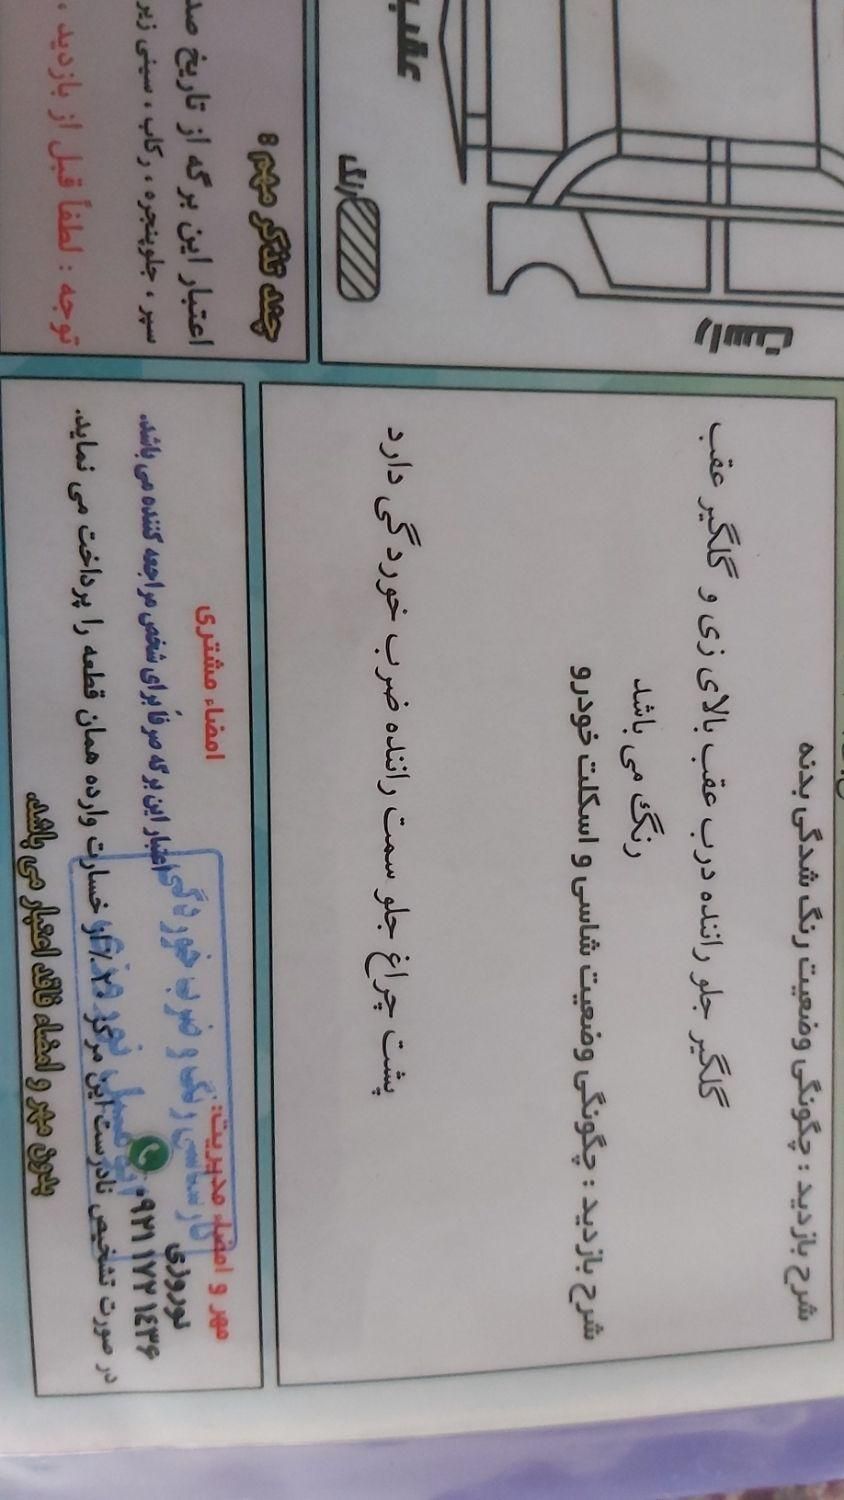 عقب
رنگ
راست
چند تذکر مهم :
اعتبار این برگه از تاریخ
سپر ، جلوپنجره ، رکاب ، سینی
توجه : لطفاً قبل از بازدید ،
شرح بازدید : چگونگی وضعیت رنگ شدگی بدنه
گلگیر جلو راننده درب عقب بالای زی و گلگیر عقب
رنگ می باشد
شرح بازدید : چگونگی وضعیت شاسی و اسکلت خودرو
پشت چراغ جلو سمت راننده ضرب خوردگی دارد
مهر و امضاء مدیریت:
امضاء مشتری
نوروزی
اعتبار این برگه صرفاً برای شخص مراجعه کننده می باشد.
۰۹۲۱ ۱۷۲ ۱۴۳۶
در صورت تشخیص نادرست این مرکز ۲۰٪ از خسارت وارده همان قطعه را پرداخت می نماید.
بدون مهر و امضاء فاقد اعتبار می باشد.
کارشناسی رنگ و ضرب خوردگی